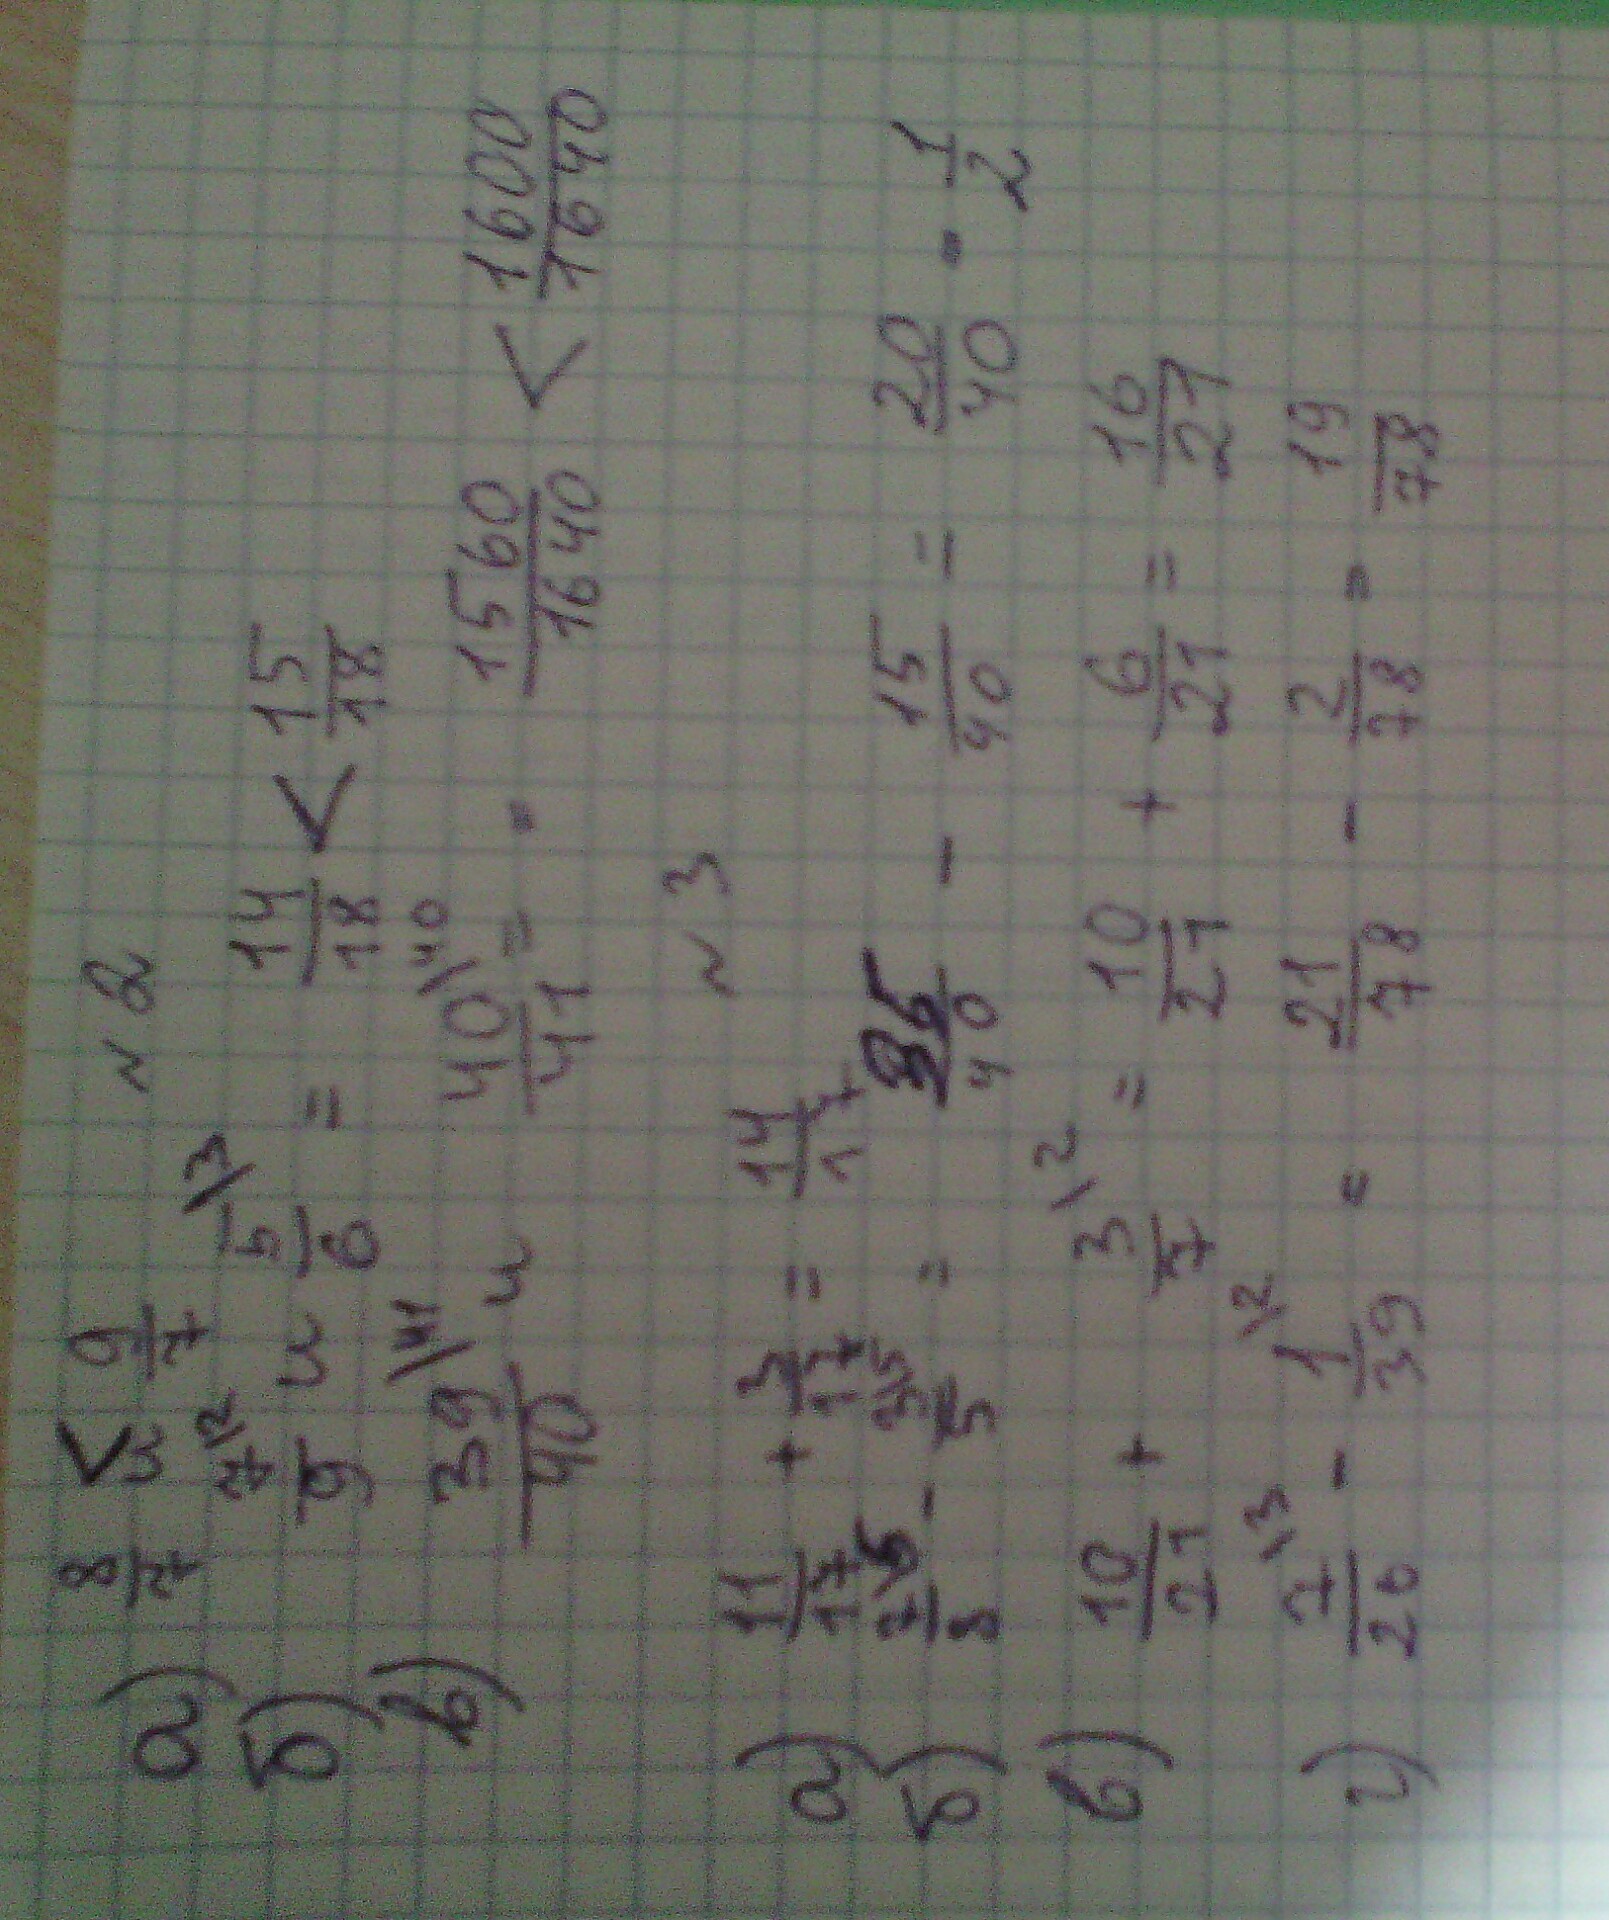 ~ 2
а) 8/7 и < 9/7
б) 7\2/9 и 5\3/6 = 14/18 < 15/18
в) 39\41/40 и 40\40/41 = 1560/1640 < 1600/1640
~ 3
а) 11/17 + 3/17 = 14/17
б) 7\5/8 - 3\5/5 = 35/40 - 15/40 = 20/40 = 1/2
в) 10/21 + 3\2/7 = 10/21 + 6/21 = 16/21
г) 7\3/26 - 1\2/39 = 21/78 - 2/78 = 19/78